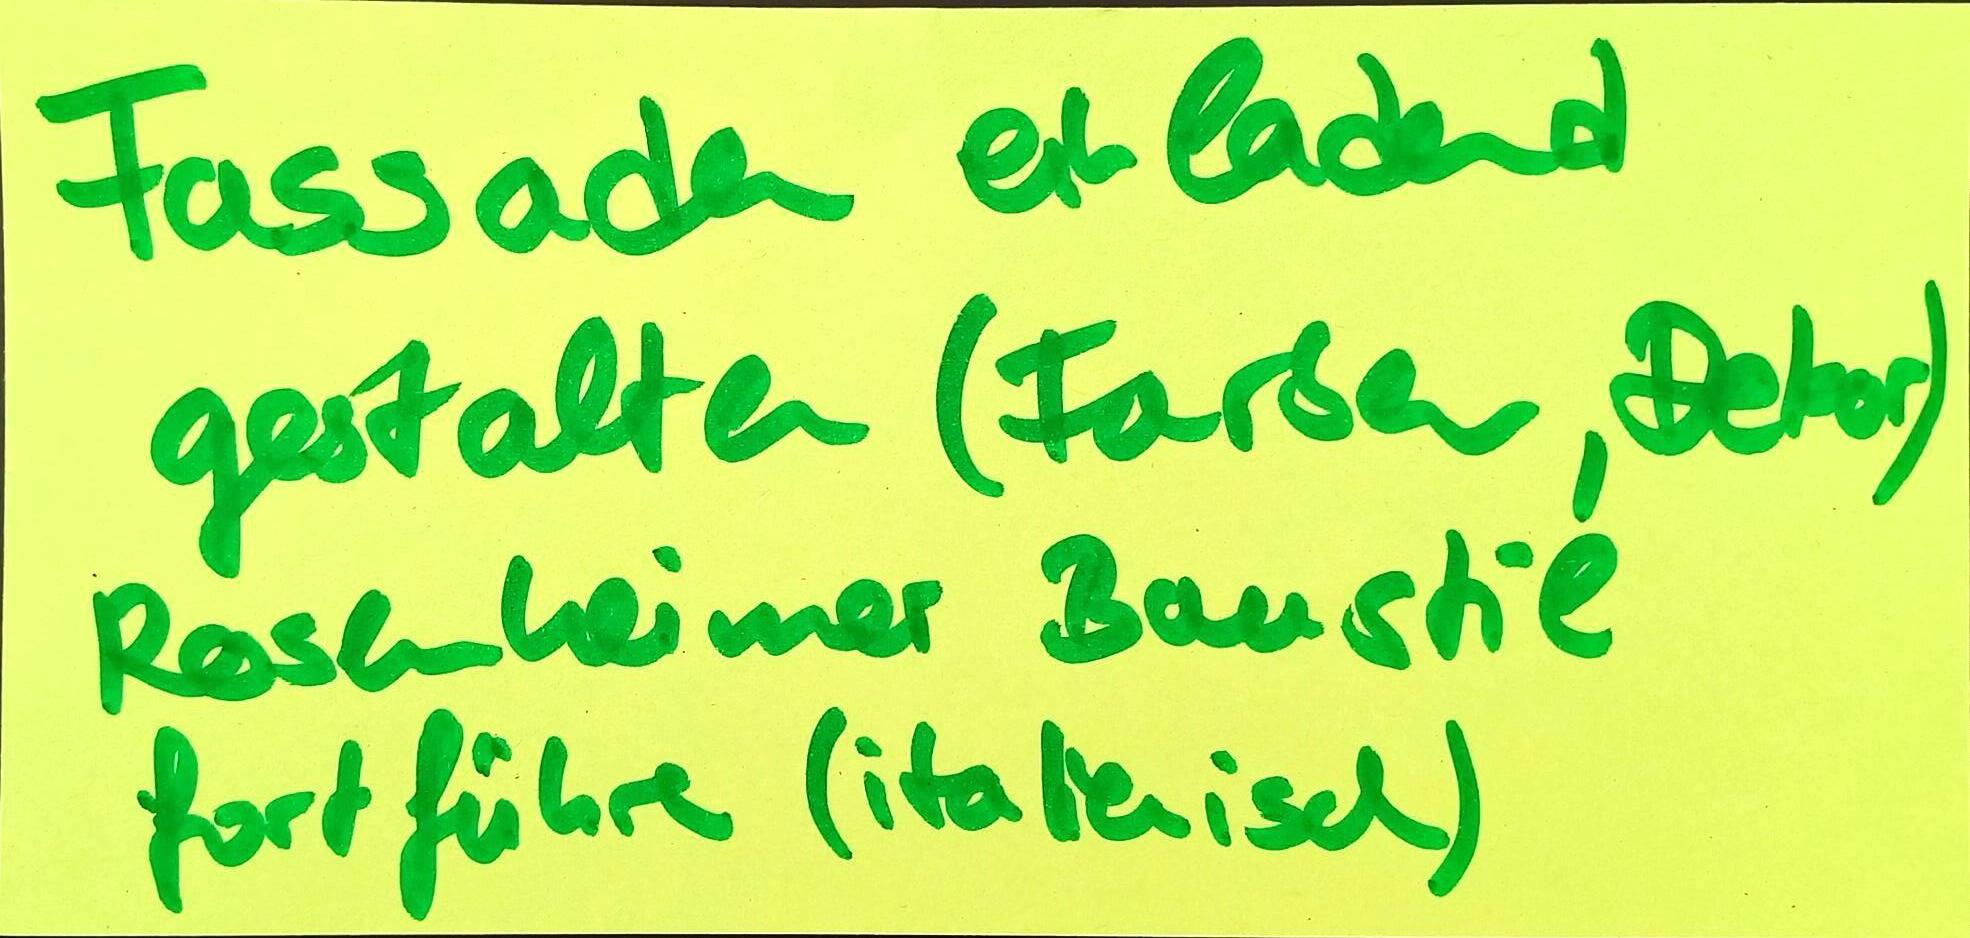 Fassaden einladend
gestalten (Farben, Dekor)
Rosenheimer Baustil
fortführen (italienisch)